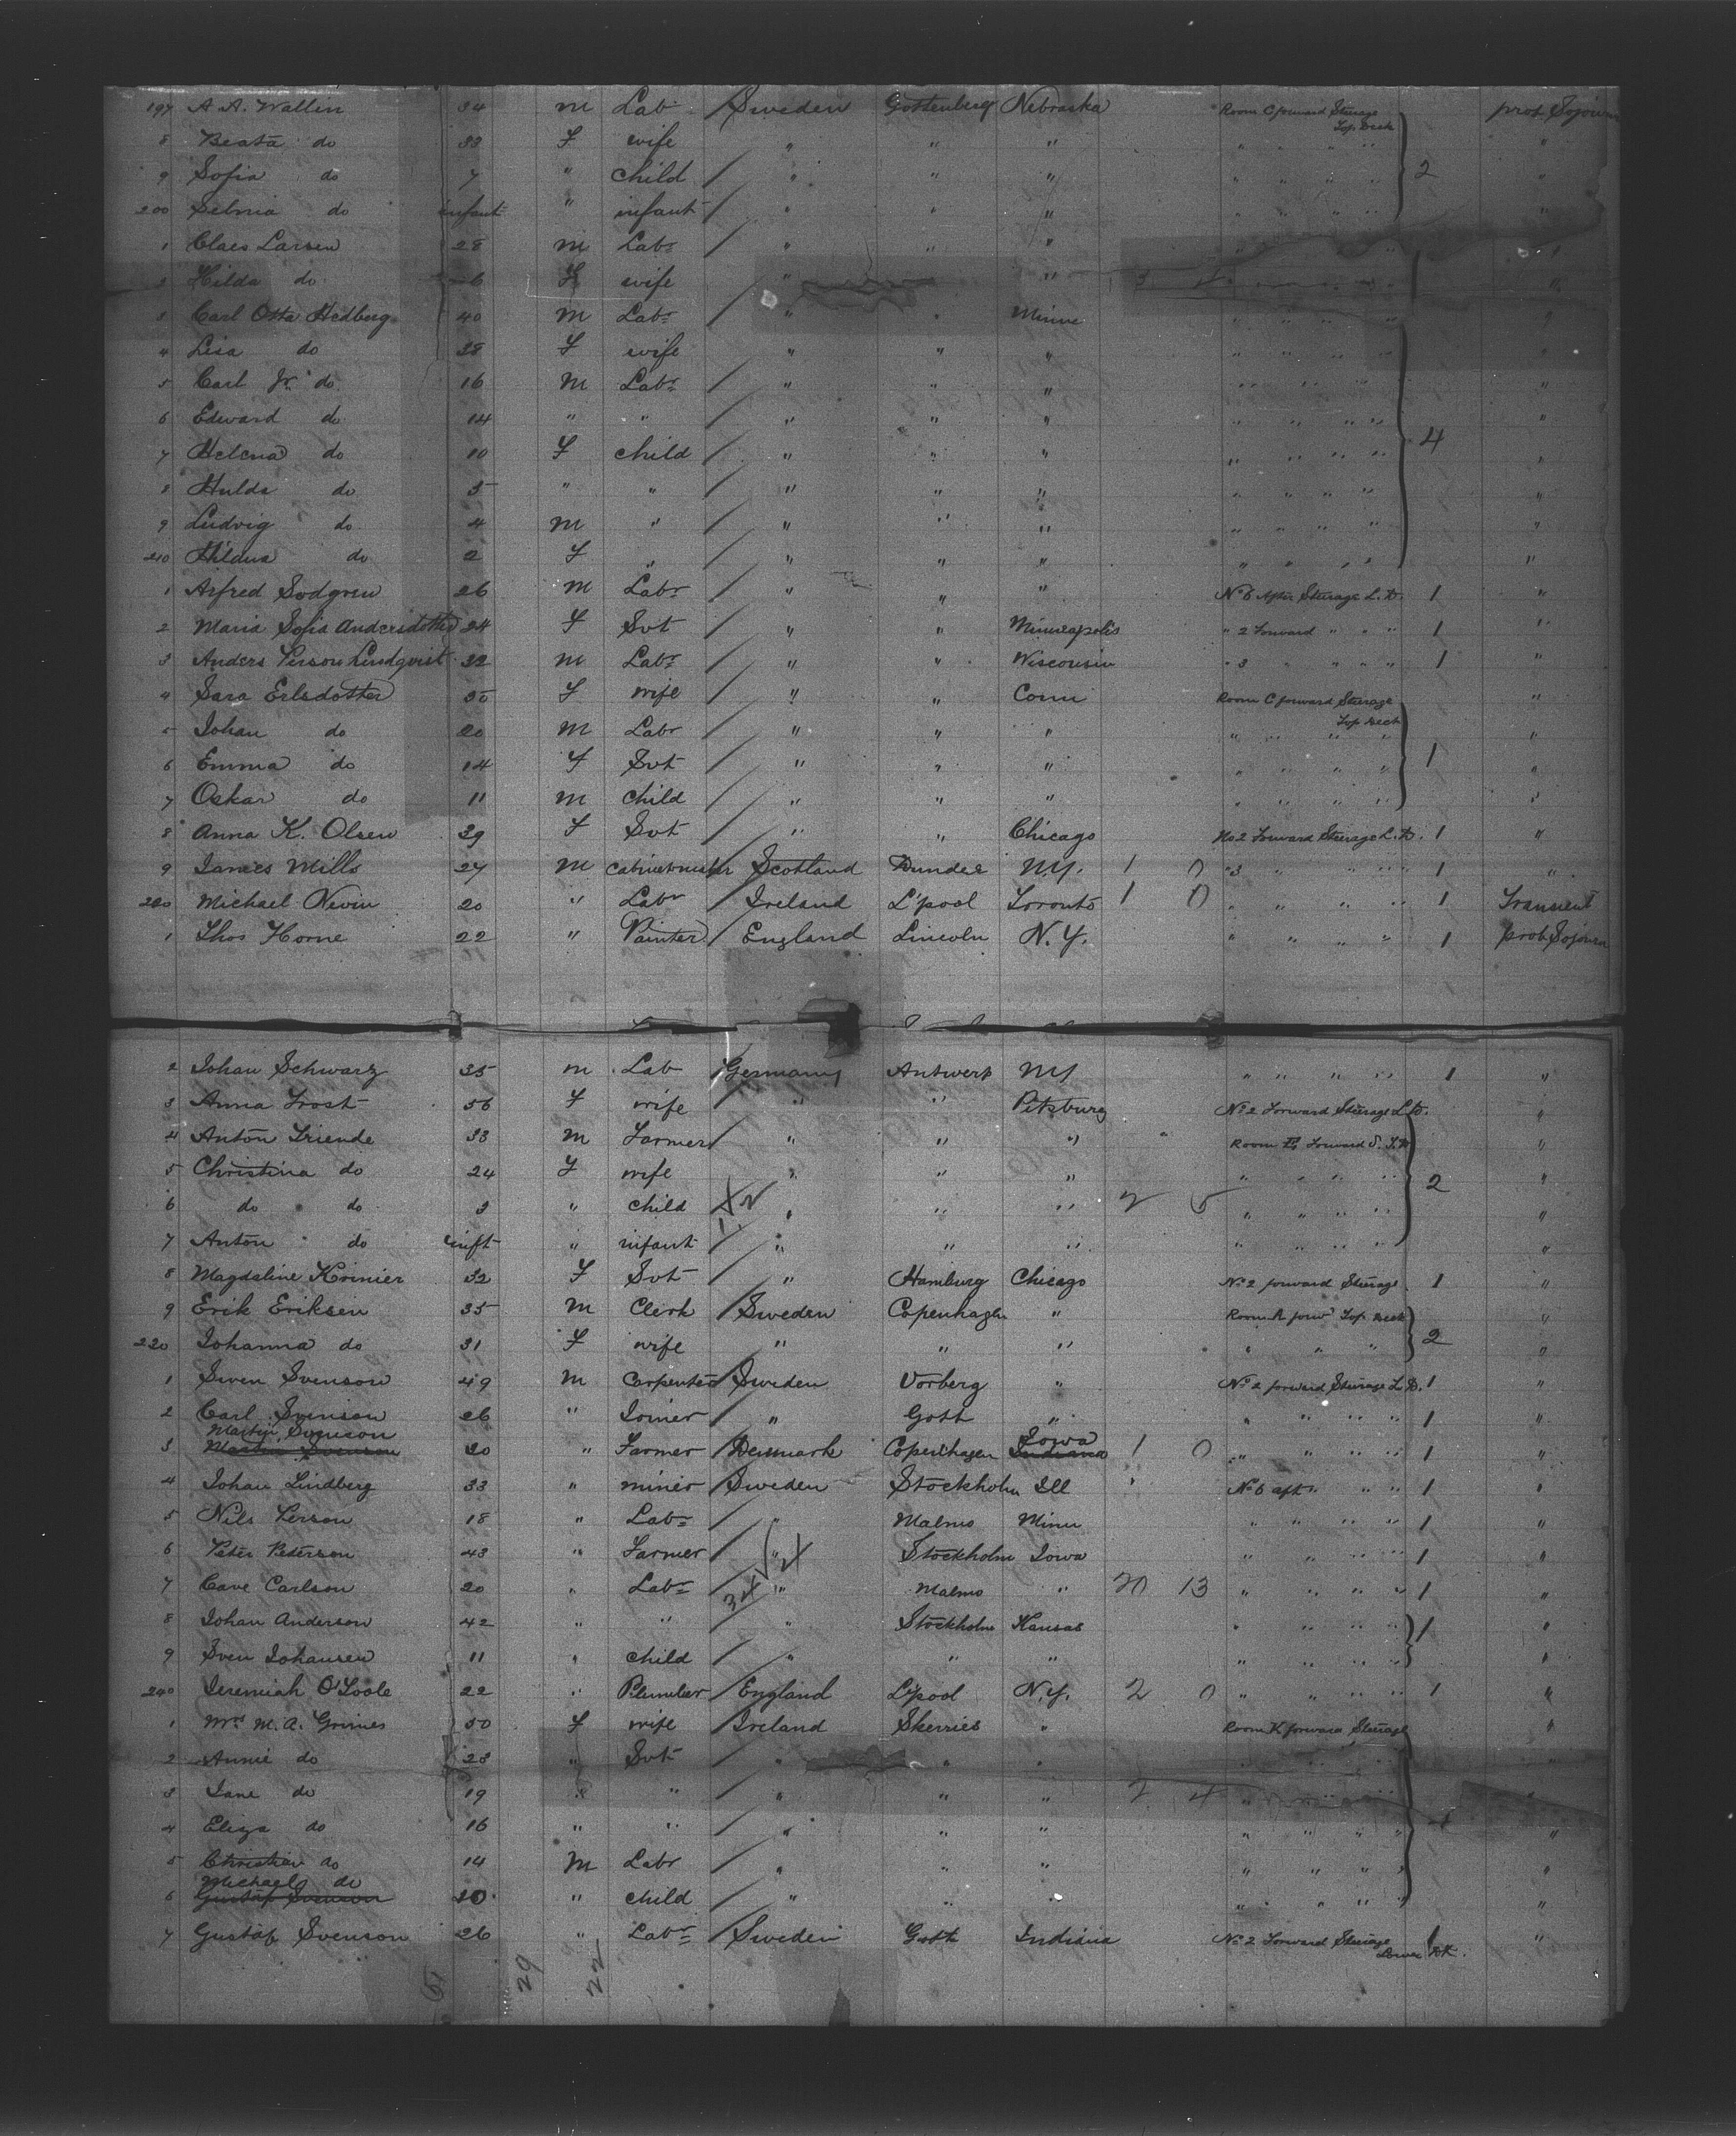 197 A A. Wallin 34 m Lab Sweden Gottenberg Nebraska Room C forward Sterage Top Deck 2 prob Sojourn
8 Beata do 33 F wife " " " " " " " "
9 Sofia do 7 " child " " " " " " " "
200 Selmia do infant " infant " " " " " " " "
1 Claes Larsen 28 m Labr " " " " " " " 1 "
2 Hilda do 26 F wife " " " " " " " "
3 Carl Otto Hedberg 40 m Labr " " Minne " " " " 4 "
4 Lisa do 38 F wife " " " " " " " "
5 Carl Jr. do 16 m Labr " " " " " " " "
6 Edward do 14 " " " " " " " " " "
7 Helena do 10 F child " " " " " " " "
8 Hulda do 5 " " " " " " " " " "
9 Ludvig do 4 m " " " " " " " " "
210 Hildus do 2 F " " " " " " " " "
1 Arfred Sodgren 26 m Labr " " " No 6 After Sterage L. D. 1 "
2 Maria Sofia Andersdotter 24 F Svt " " Minneapolis " 2 Forward " " " 1 "
3 Anders Person Lindqvist 32 m Labr " " Wisconsin " 3 " " " " 1 "
4 Sara Erlsdotter 50 F wife " " Conn Room C forward Sterage Top Deck 1 "
5 Johan do 20 m Labr " " " " " " " "
6 Emma do 14 F Svt " " " " " " " "
7 Oskar do 11 m child " " " " " " " "
8 Anna K. Olsen 39 F Svt " " Chicago No 2 Forward Sterage L. D. 1 "
9 James Mills 27 m Cabinetmaker Scotland Dundee N.Y. 1 0 " 3 " " " " 1 "
220 Michael Nivin 20 " Labr Ireland L'pool Toronto 1 0 " " " " 1 Transient
1 Thos Horne 22 " Painter England Lincoln N.Y. " " " " 1 prob Sojourn
2 Johan Schwarz 35 m Lab Germany Antwerp NY " " " " 1 "
3 Anna Trost 56 F wife " " Pitsburg No 2 Forward Sterage L. D. "
4 Anton Triende 33 m Farmer " " " Room Forward S. T. D 2 "
5 Christina do 24 F wife " " " " " " " "
6 do do 3 " child " " " 2 5 " " " " "
7 Anton do inft " infant " " " " " " " "
8 Magdaline Krinier 32 F Svt " Hamburg Chicago No 2 forward Sterage 1 "
9 Erik Eriksen 35 m Clerk Sweden Copenhagen " Room A forwd Top Deck 2 "
220 Johanna do 31 F wife " " " " " " "
1 Swen Svenson 49 m Carpenter Sweden Vorberg " No 2 forward Sterage L. D. 1 "
2 Carl Svenson 26 " Joiner " Gott " " " " " 1 "
Martin Svenson Iowa
3 Martin Svenson 20 " Farmer Denmark Copenhagen Indiana 1 0 " " " " 1 "
4 Johan Lindberg 33 " miner Sweden Stockholm Ill No 6 aft " " " 1 "
5 Nils Person 18 " Labr " Malmo Minn " " " " 1 "
6 Peter Peterson 43 " Farmer " Stockholm Iowa " " " " 1 "
7 Cave Carlson 20 " Labr 34 " Malmo " 20 13 " " " " 1 "
8 Johan Anderson 42 " " " Stockholm Kansas " " " " 1 "
9 Sven Johansen 11 " child " " " " " " " "
240 Jeremiah O'Toole 22 " Plumber England L'pool N.Y. 2 0 " " " " 1 "
1 Mrs M. A. Grimes 50 F wife Ireland Skerries " Room K forward Sterage "
2 Annie do 23 " Svt " " " "
3 Jane do 19 " " " " " 2 4 " " " " "
4 Eliza do 16 " " " " " " " " " "
5 Christian do 14 m Labr " " " " " " " "
Michael do
6 Gustaf Svenson 10 " child " " " " " " " "
7 Gustaf Svenson 26 " Labr Sweden Gott Indiana No 2 Forward Sterage Lower Dk. 1 "
51 29 22